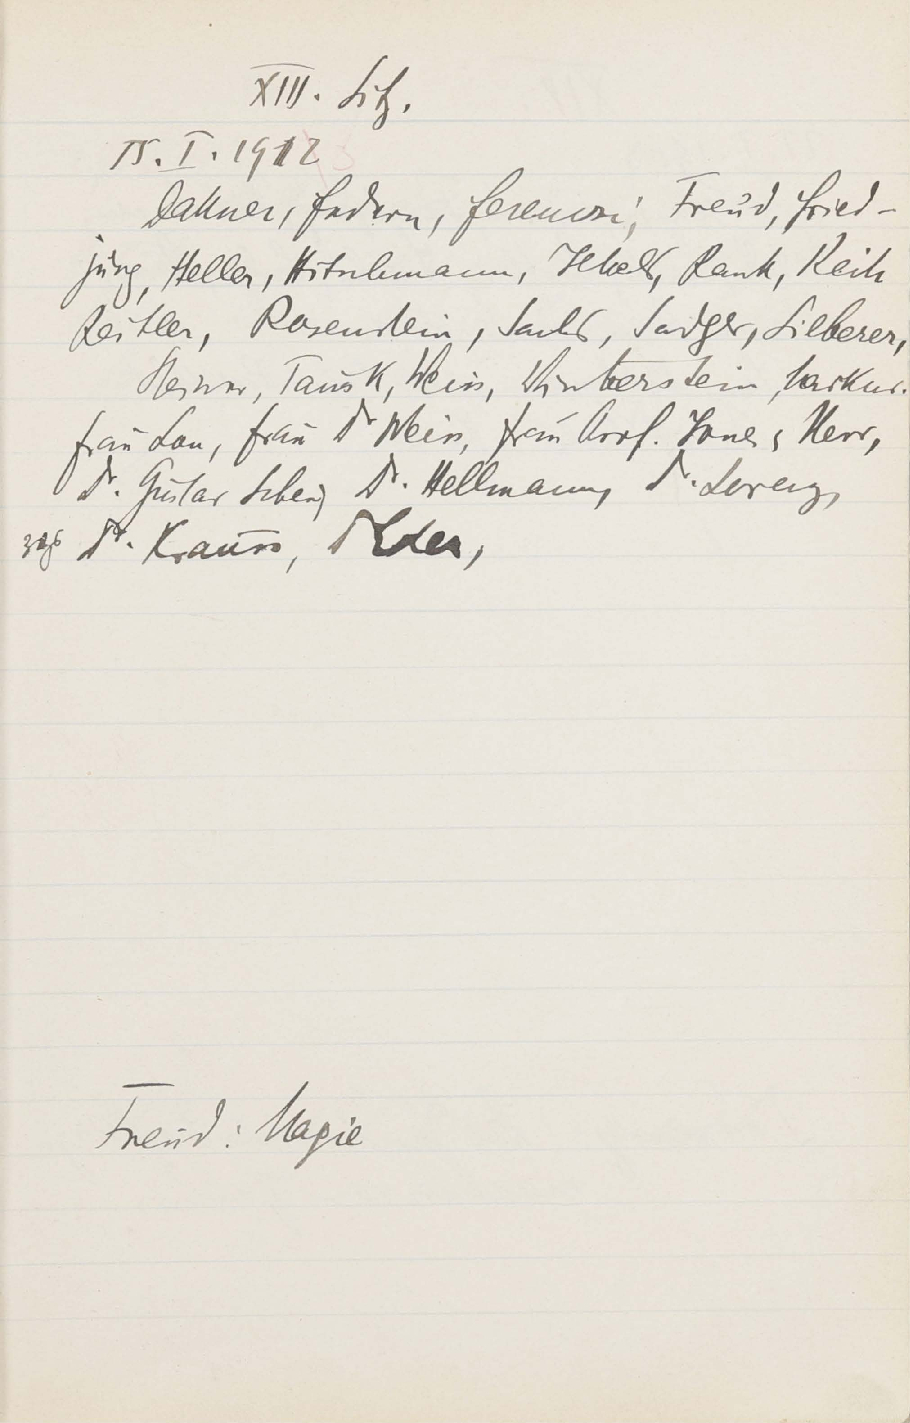 XIII. Sitz.
15. I. 1912 3
Dattner, Federn, Ferenczi, Freud, Fried-
jung, Heller, Hitschmann, Jekels, Rank, Reik
Reitler, Rosenstein, Sachs, Sadger, Silberer,
Steiner, Tausk, Weiss, Winterstein,
Frau Lou, Frau Dr Weiss, Frau Prof. Jones, Herr,
Dr. Gustav Dr. Hellmann, Dr. Lorenz,
Dr. Krauss, Dr Eder,
Freud: Magie